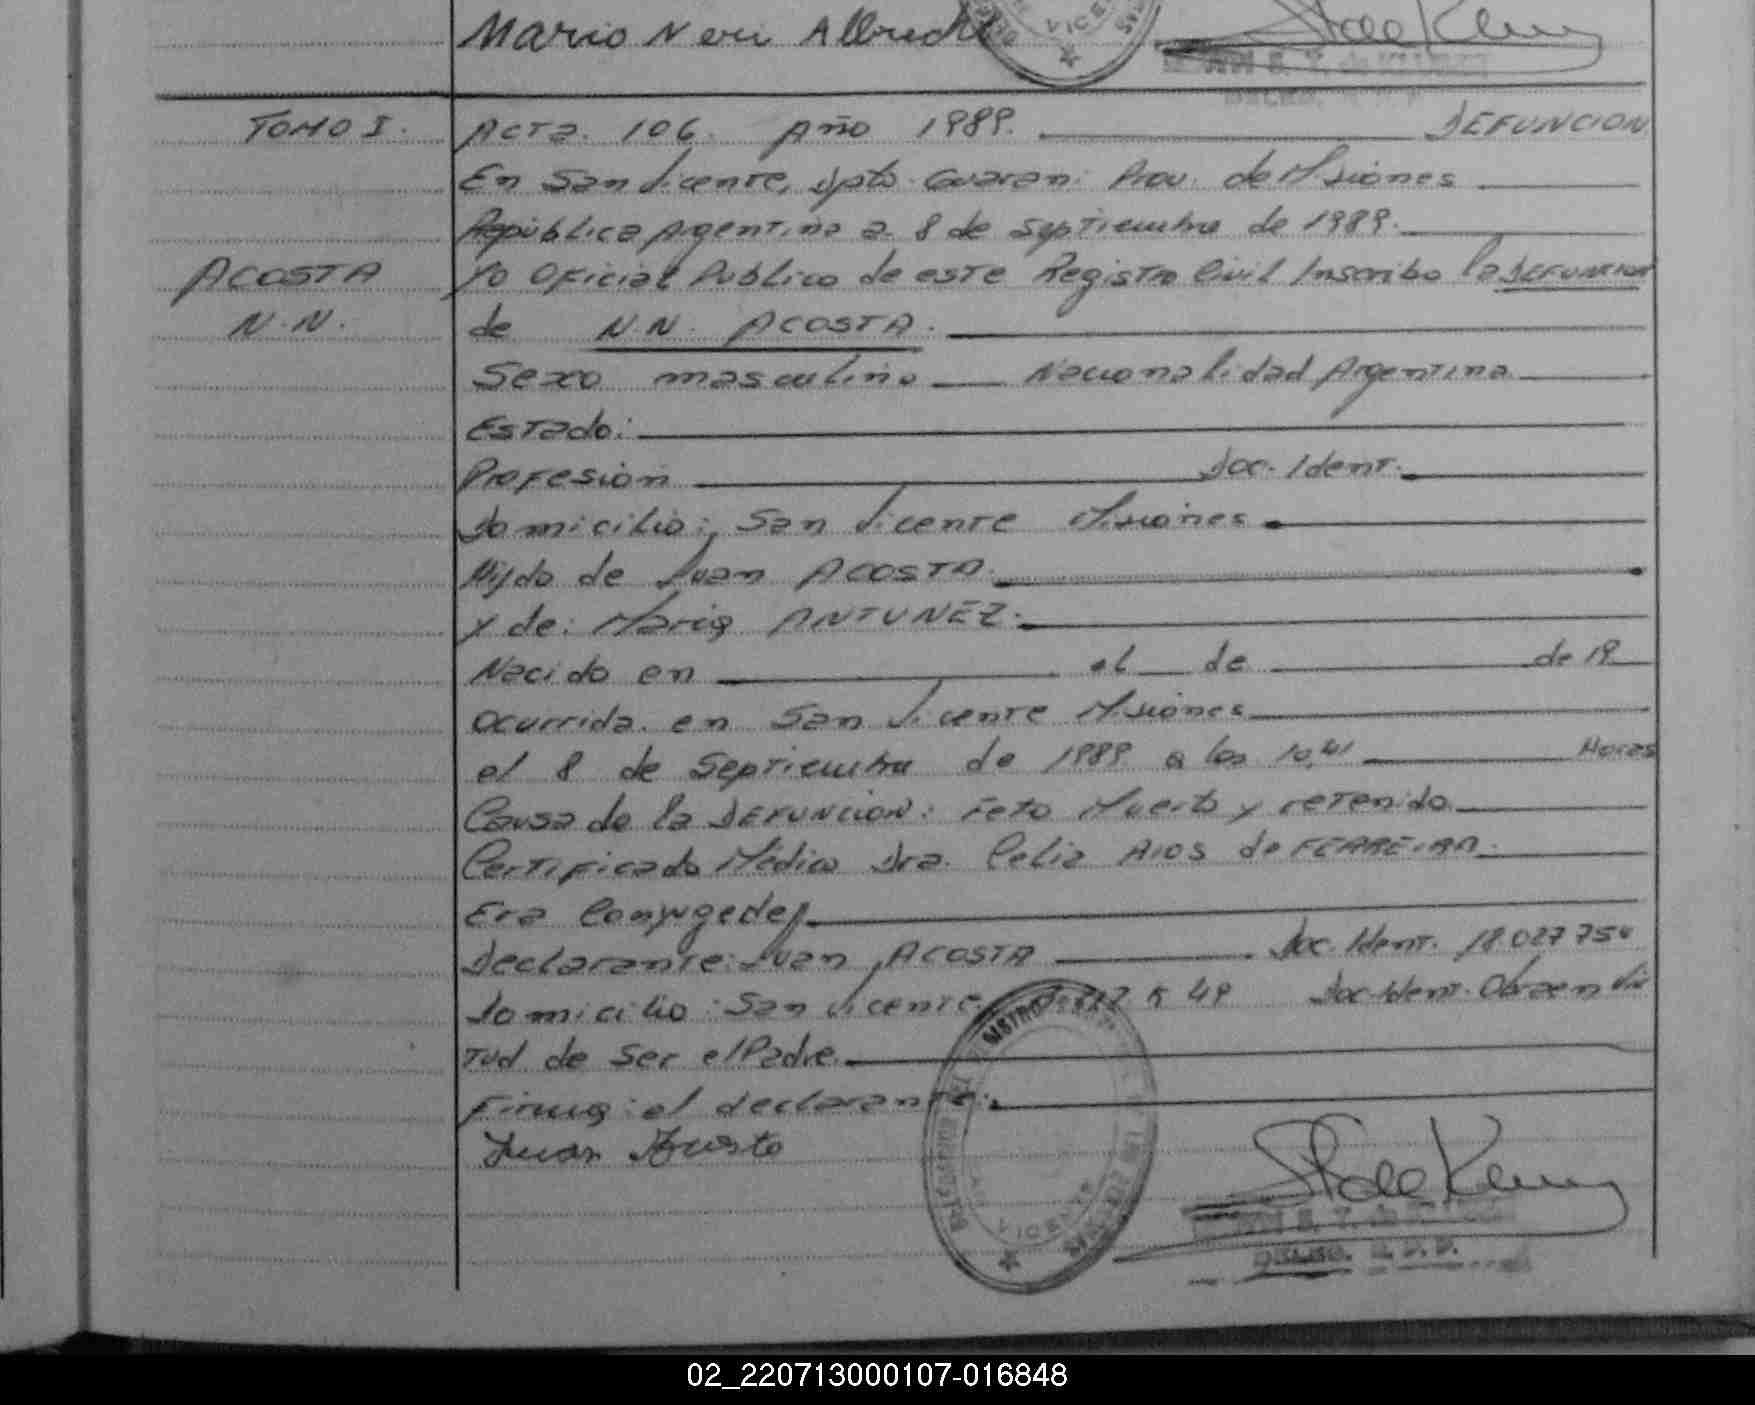 Mario Neri Albrecht
TOMO I. Acta. 106. Año 1989. DEFUNCION
En San Vicente, Dpto. Guarani Prov. de Misiones
Republica Argentina a 8 de Septiembre de 1989.
ACOSTA Yo Oficial Publico de este Registro Civil Inscribo la DEFUNCION
N.N. de N.N. ACOSTA.
Sexo masculino Nacionalidad Argentina
Estado:
Profesión Doc. Ident.
Domicilio: San Vicente Misiones
Hijo de Juan ACOSTA.
Y de: Maria ANTUNEZ.
Nacido en el de de 19
ocurrida en San Vicente Misiones
el 8 de Septiembre de 1989 a las 10,41 Horas
Causa de la DEFUNCION: Feto Muerto y retenido.
Certificado Médico Dra. Celia RIOS de FERREIRA.
Era Conyugede
Declarante: Juan ACOSTA Doc. Ident. 18.027.754
Domicilio: San Vicente K 49 Doc. Ident. Obra en Vir
tud de Ser el Padre.
Firma: el declarante.
Juan Acosta
VICENTE
02_220713000107-016848